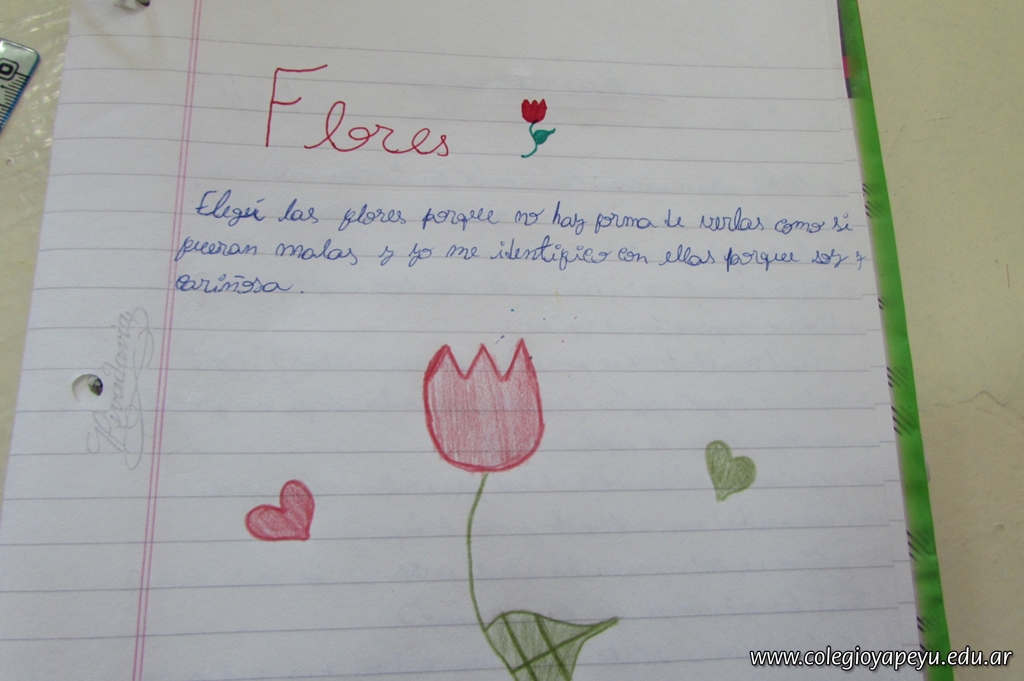 Flores
Elegí las flores porque no hay forma de verlas como si
fueran malas y yo me identifico con ellas porque soy
cariñosa.
Rivadavia
www.colegioyapeyu.edu.ar